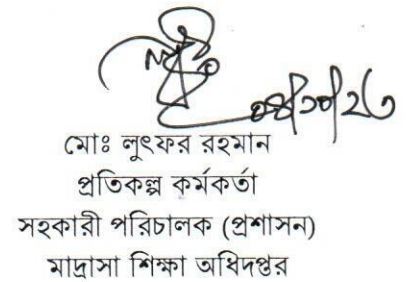 ০৪/১০/২৩
মোঃ লুৎফর রহমান
প্রতিকল্প কর্মকর্তা
সহকারী পরিচালক (প্রশাসন)
মাদ্রাসা শিক্ষা অধিদপ্তর